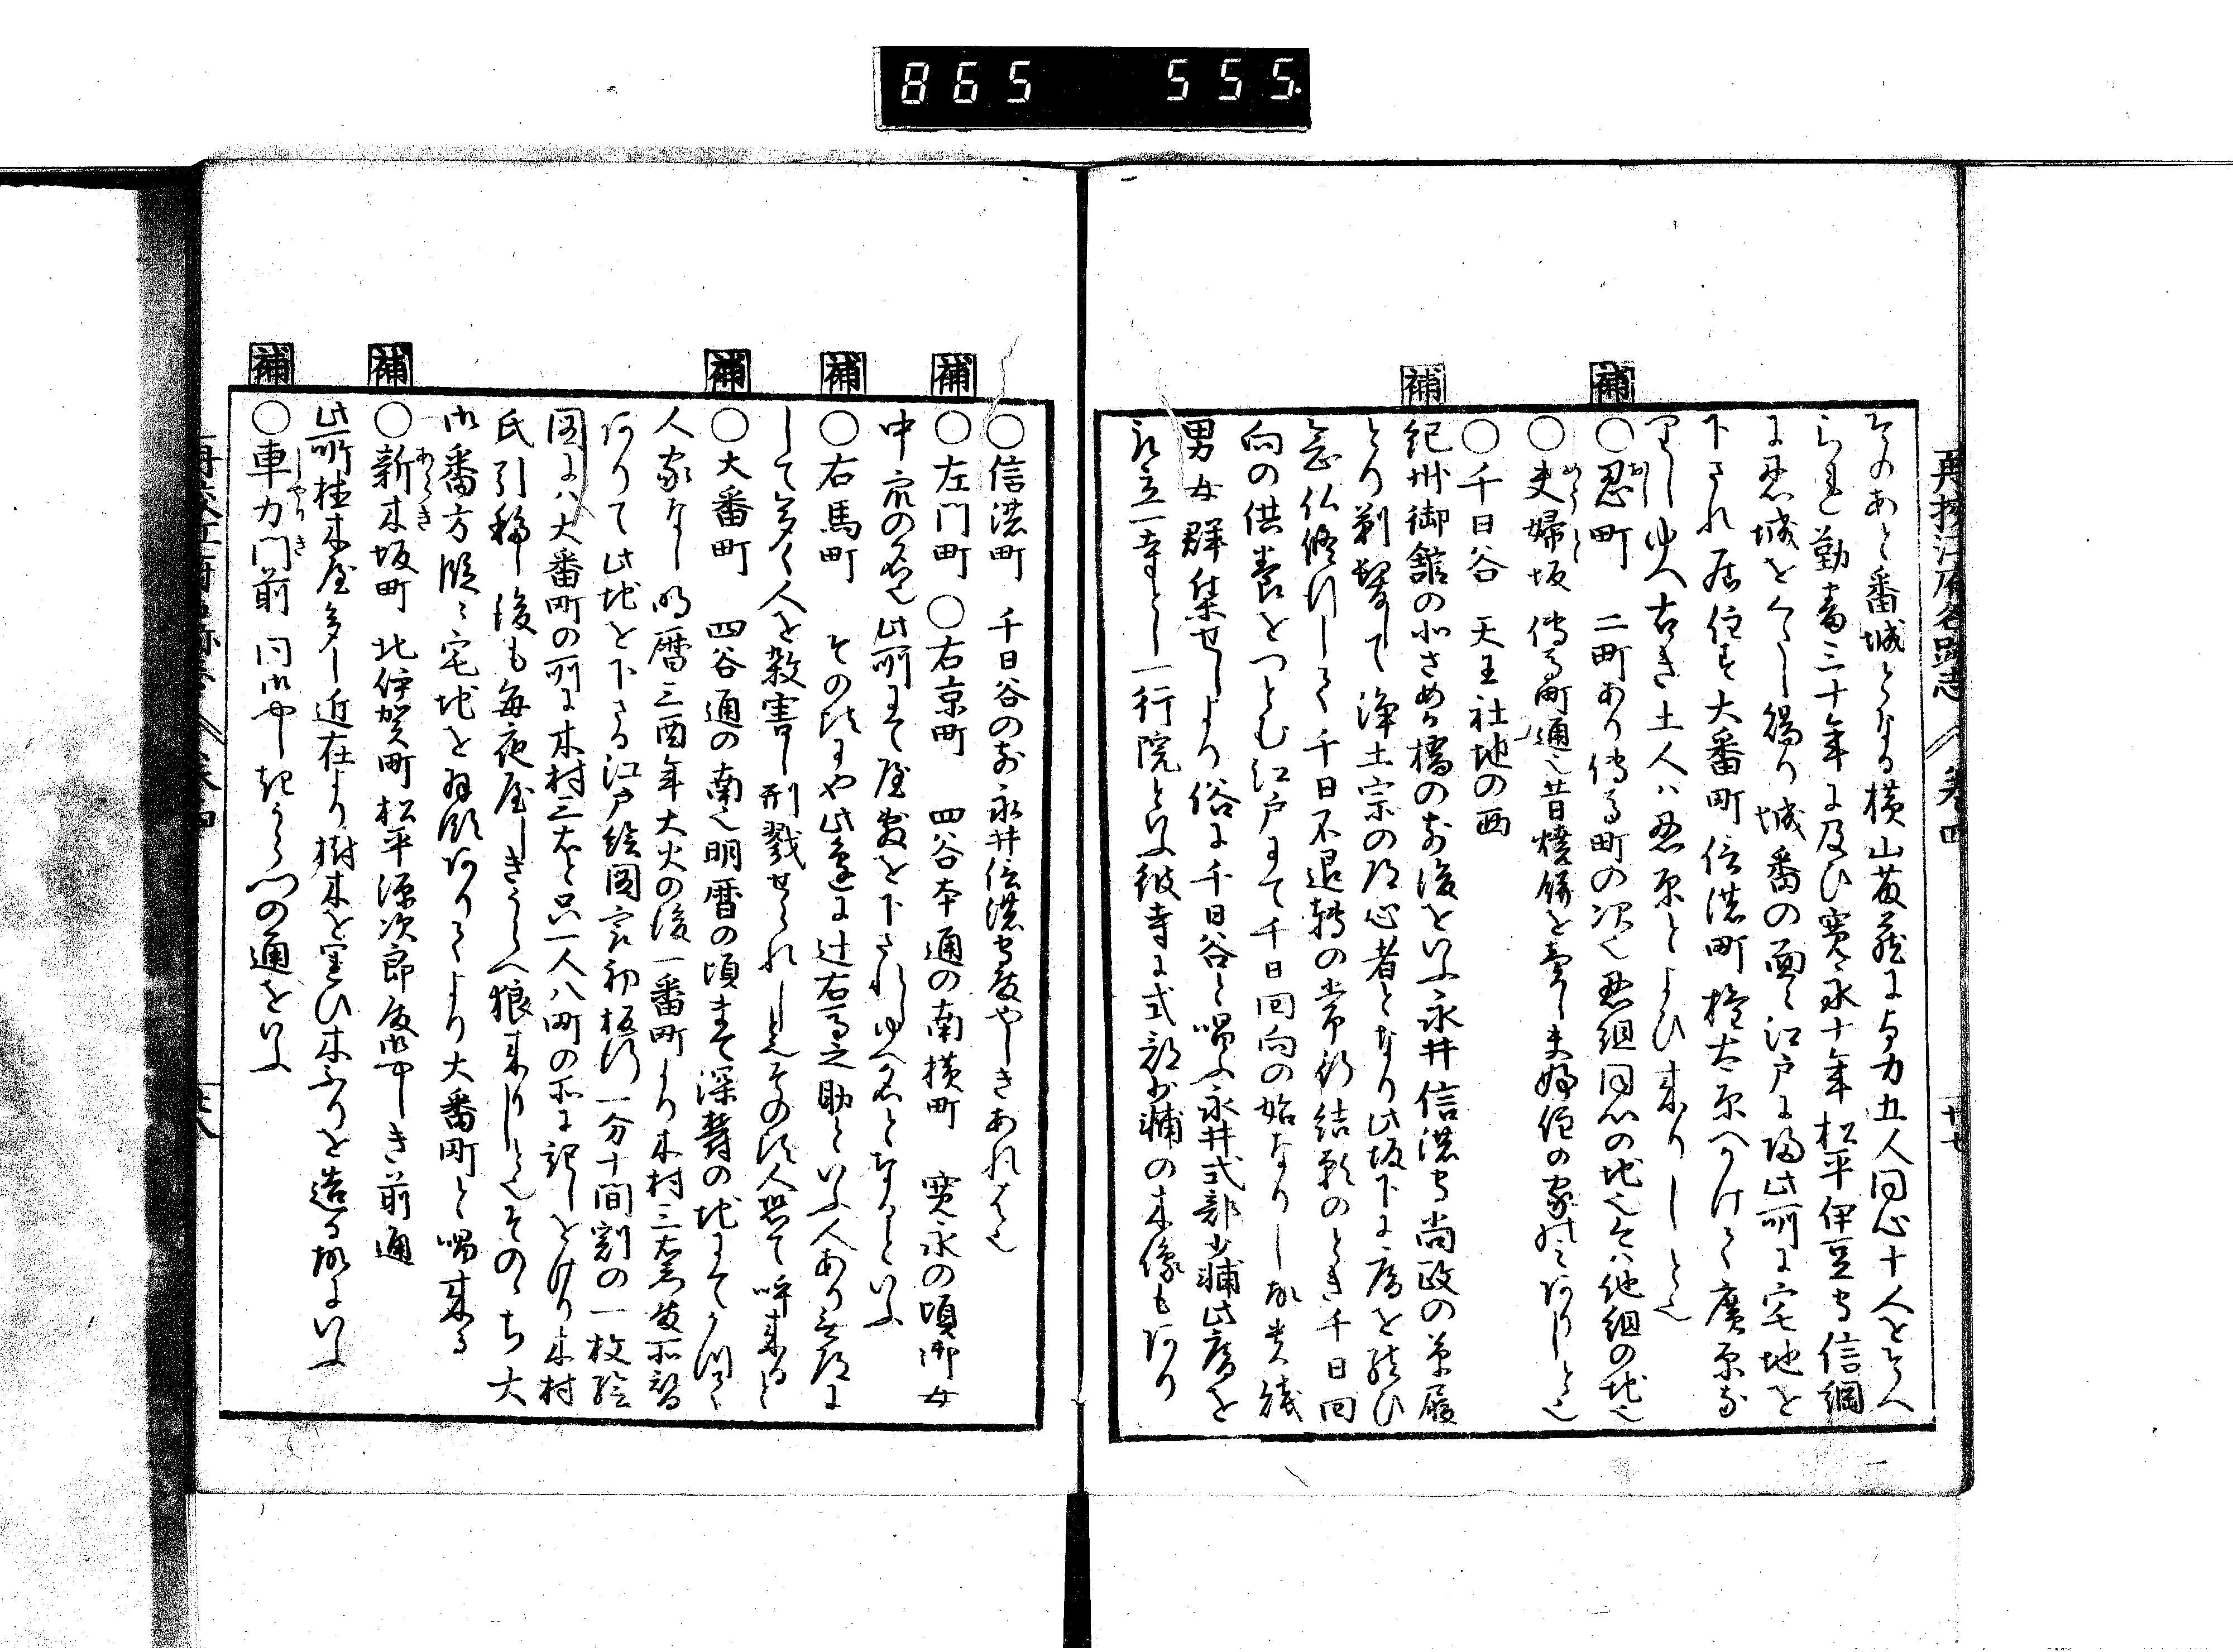 865 555.
再校江府名跡志 巻四 廿七
そのあと番城となる横山茂蔵に与力五人同心十人をそへ
られ勤番三十年に及ひ寛永十年松平伊豆守信綱
に忍城をくたし賜り城番の面々江戸に帰此所に宅地を
下され居住す大番町信濃町権太原へかけて廣原な
りしゆへ古き土人ハ忍原とよひ来りしと也
補
○忍町 二町あり傳馬町の次也忍組同心の地也今ハ他組の地也
おし
○夫婦坂 傳馬町通也昔焼餅を賣し夫婦
めうと
○千日谷 天王社地の西
補
紀州御舘の北さめか橋のお後をいふ永井信濃守尚政の草履
とり剃髪して浄土宗の道心者となり此坂下に庵を結ひ
念仏修行して千日不退轉の常行結願のとき千日回
向の供養をつとむ江戸にて千日回向の始なりし故貴賤
男女群集せしより俗に千日谷と唱ふ永井式部少輔此庵を
取立一寺とし一行院といふ彼寺に式部少輔の木像もあり
○信濃町 千日谷のお永井信濃守殿やしきあれは也
補
○左門町 ○右京町 四谷本通の南横町 寛永の頃御女
中衆の名也此所にて屋敷を下されしゆへ名となるといふ
補
○右馬町 その頃にや此邊に辻右馬之助といふ人あり無道に
して多く人を殺害し刑戮せられしと也その頃人恐て呼来ると
補
○大番町 四谷通の南也明暦の頃まて深叢の地にて
人家なし明暦三酉年大火の後一番町より木村三右衛門
ありて此地を下さる江戸絵図 初板行一分十間割の一枚絵
図にハ大番町の所に木村三右と只一人八町の所に記しをけり木村
氏引移し後も毎夜屋しきうらへ狼来りしと也そのゝち大
御番方段々宅地を拝領ありてより大番町と唱来る
補
○新木坂町 北伊賀町松平源次郎殿御やしき前通
あらき
此所植木屋多し近在より樹木を買ひ木ふりを造る故にいふ
補
○車力門前 同御やしき うら門の通をいふ
しやりき